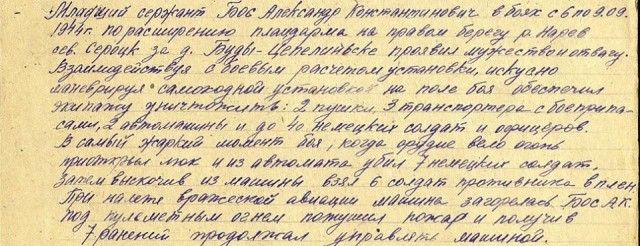 - Младший сержант Грос Александр Константинович в боях с 6 по 9.09.
1944г. по расширению плацдарма на правом берегу р. Нарев
сев. Сероцк за д. Буды-Цепелиньске проявил мужество и отвагу.
Взаимодействуя с боевым расчетом установки, искусно
маневрируя самоходной установкой на поле боя обеспечил
экипажу уничтожить: 2 пушки, 3 транспортера с боеприпа-
сами, 2 автомашины и до 40 немецких солдат и офицеров.
В самый жаркий момент боя, когда орудие вело огонь
приоткрыл люк и из автомата убил 7 немецких солдат.
Затем выскочив из машины взял 6 солдат противника в плен.
При налете вражеской авиации машина загорелась. Грос А.К.
под пулеметным огнем потушил пожар и получив
7 ранений продолжал управлять машиной.